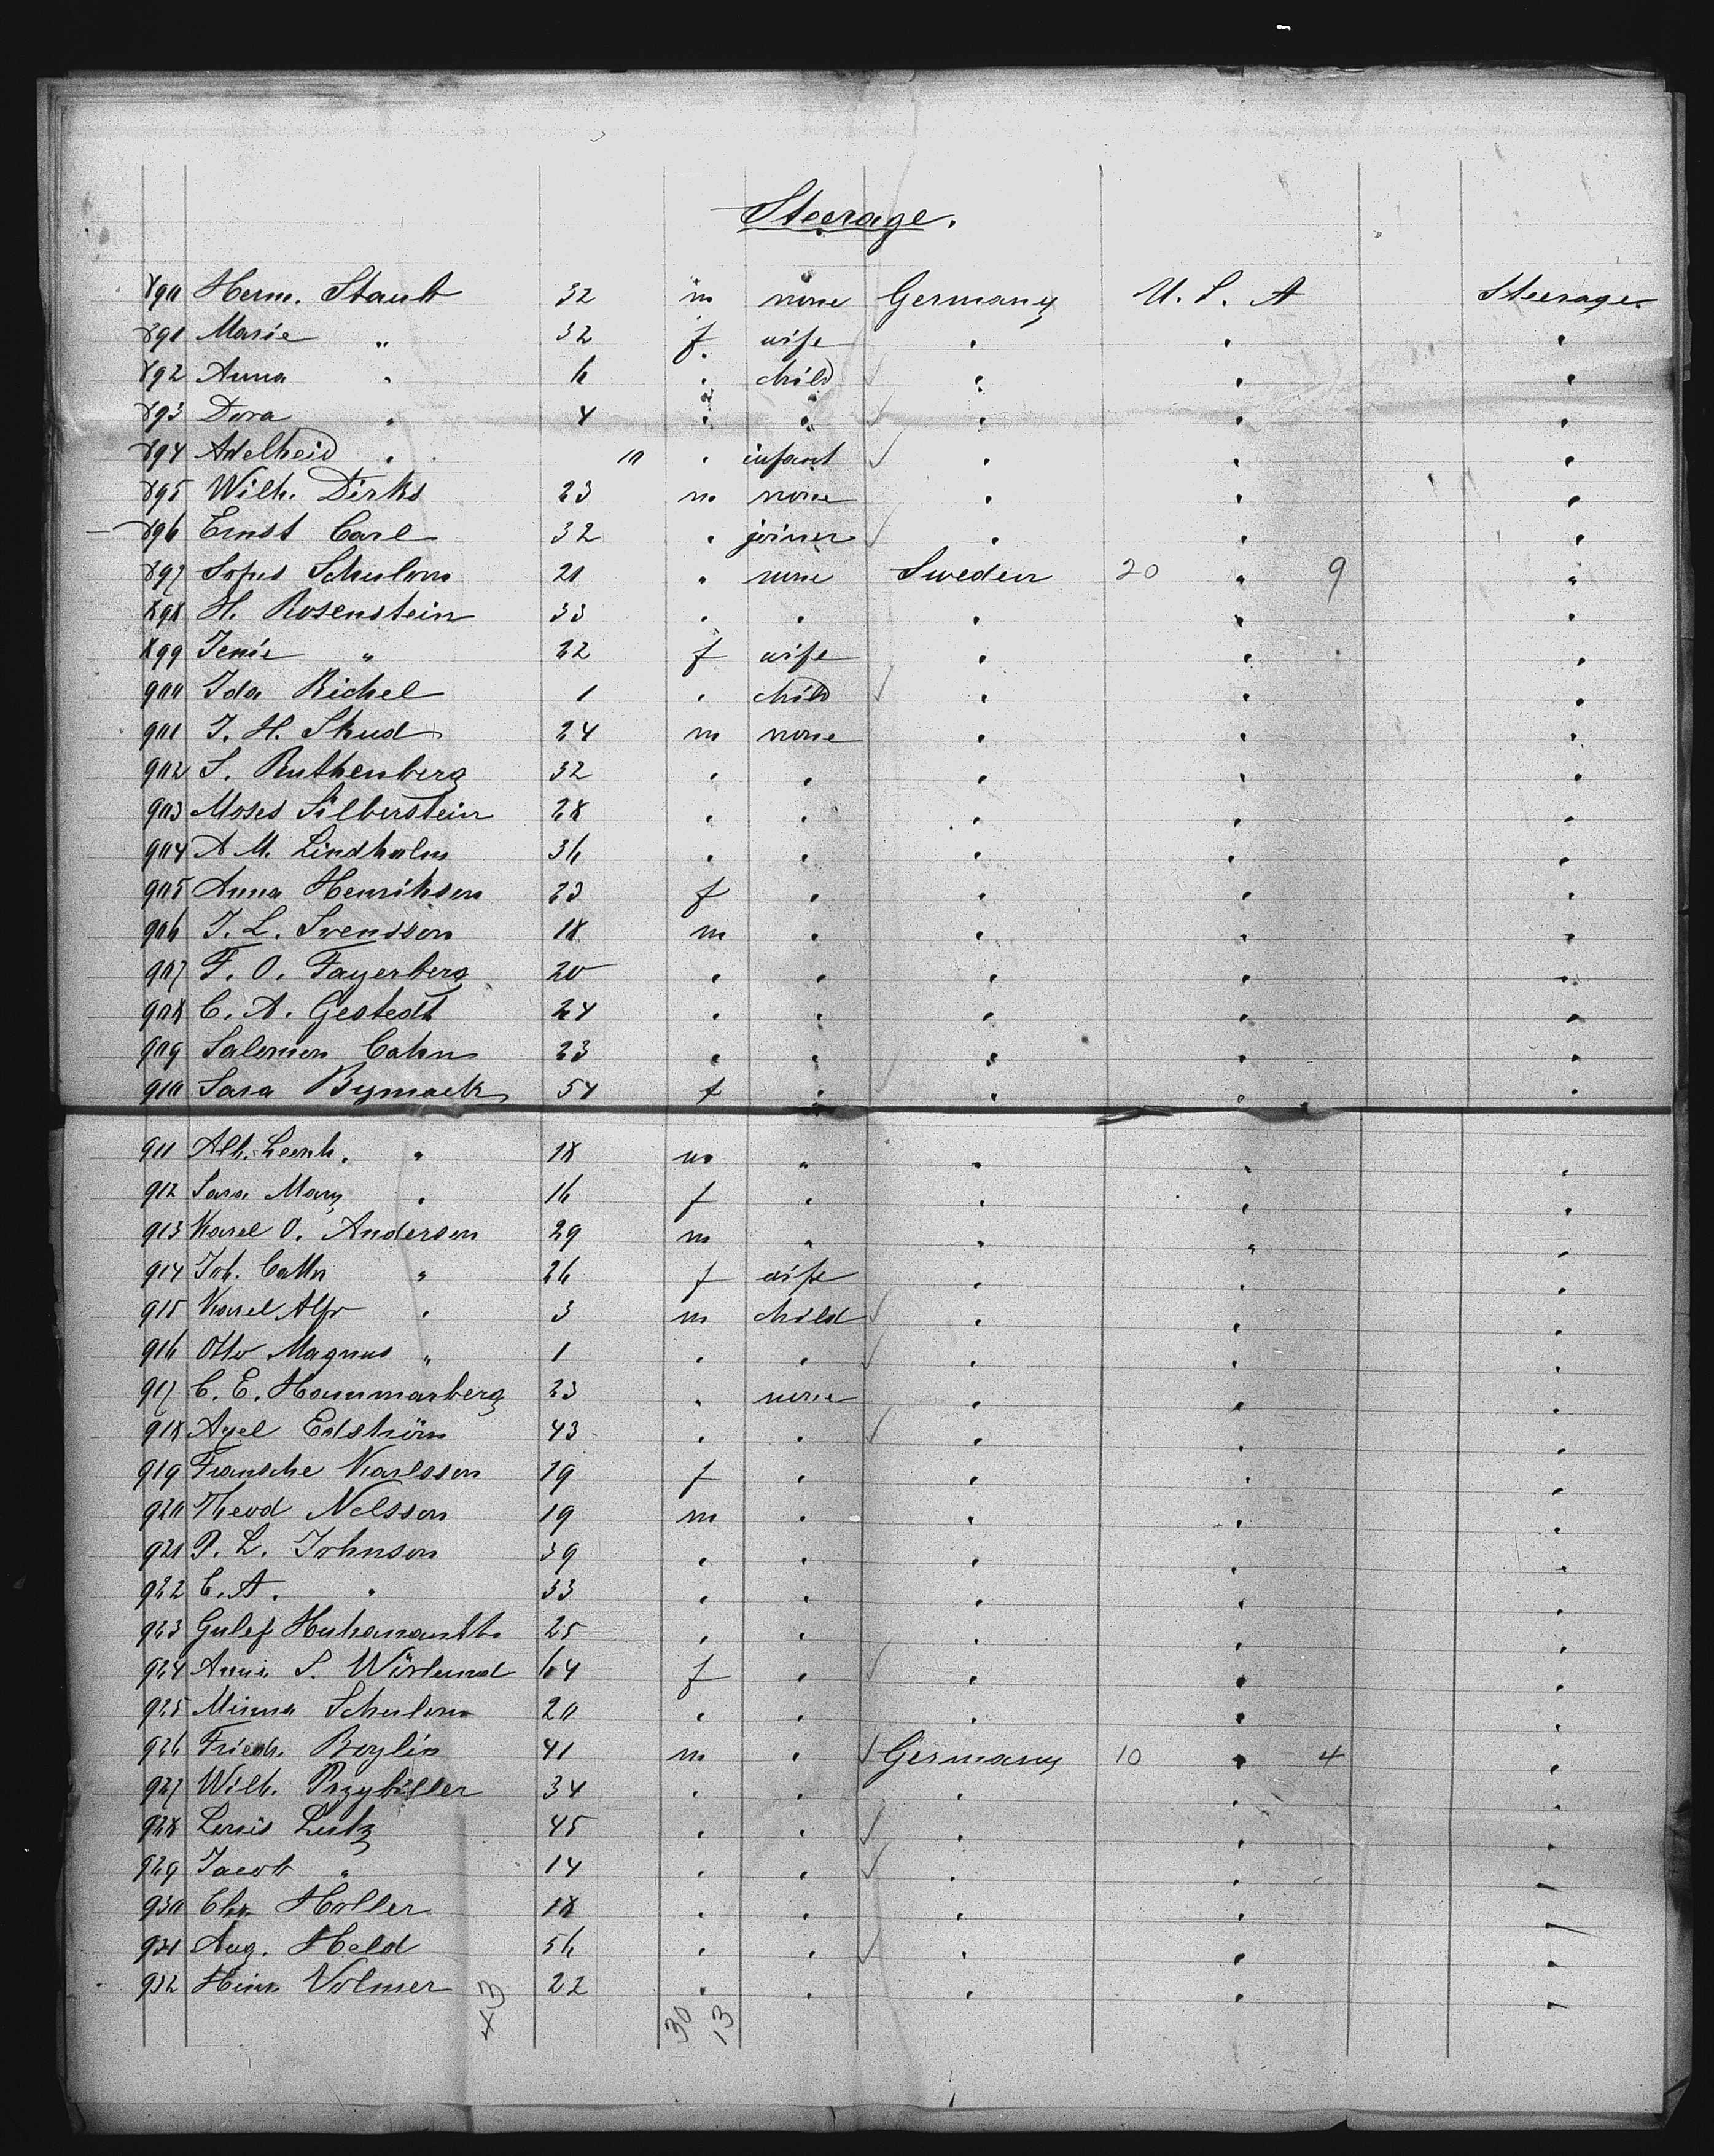 Steerage.
890 Herm. Staub 32 m none Germany U. S. A Steerage
891 Marie " 32 f wife " " "
892 Anna " 6 " child " " "
893 Dora " 4 " " " " "
894 Adelheid " 10 " infant " " "
895 Wilh. Dirks 23 m none " " "
896 Ernst Carl 32 " joiner " " "
897 Sofus Schulom 21 " none Sweden 20 " 9 "
898 H. Rosenstein 33 " " " " "
899 Jenie " 22 f wife " " "
900 Ida Richel 1 " child " " "
901 J. H. Skud 24 m none " " "
902 S. Ruthenberg 32 " " " " "
903 Moses Silberstein 28 " " " " "
904 A M. Lindholm 36 " " " " "
905 Anna Henrikson 23 f " " " "
906 J. L. Svensson 18 m " " " "
907 F. O. Fayerberg 20 " " " " "
908 C. A. Gestedt 24 " " " " "
909 Salomon Cahn 23 " " " " "
910 Sara Bymack 54 f " " " "
911 Alb. " 18 m " " " "
912 Sara Mary " 16 f " " " "
913 Karel O. Anderson 29 m " " " "
914 Joh. Cath " 26 f wife " " "
915 Karel Alfr " 3 m child " " "
916 Otto Magnus " 1 " " " " "
917 C. E. Hammarberg 23 " none " " "
918 Axel Edström 43 " " " " "
919 Fransche Karlsson 19 f " " " "
920 Theod Nelsson 19 m " " " "
921 P. L. Johnson 39 " " " " "
922 C. A. " 33 " " " " "
923 Gulef 25 " " " " "
924 Anna S. 64 f " " " "
925 Minna Schulom 20 " " " " "
926 Friedr. Boylin 41 m " Germany 10 " 4 "
927 Wilh. Przybiller 34 " " " " "
928 Louis Lutz 45 " " " " "
929 Jacob " 14 " " " " "
930 Chr. Holler 18 " " " " "
931 Aug. Held 56 " " " " "
932 Heinr Volmer 22 " " " " "
43 30 13